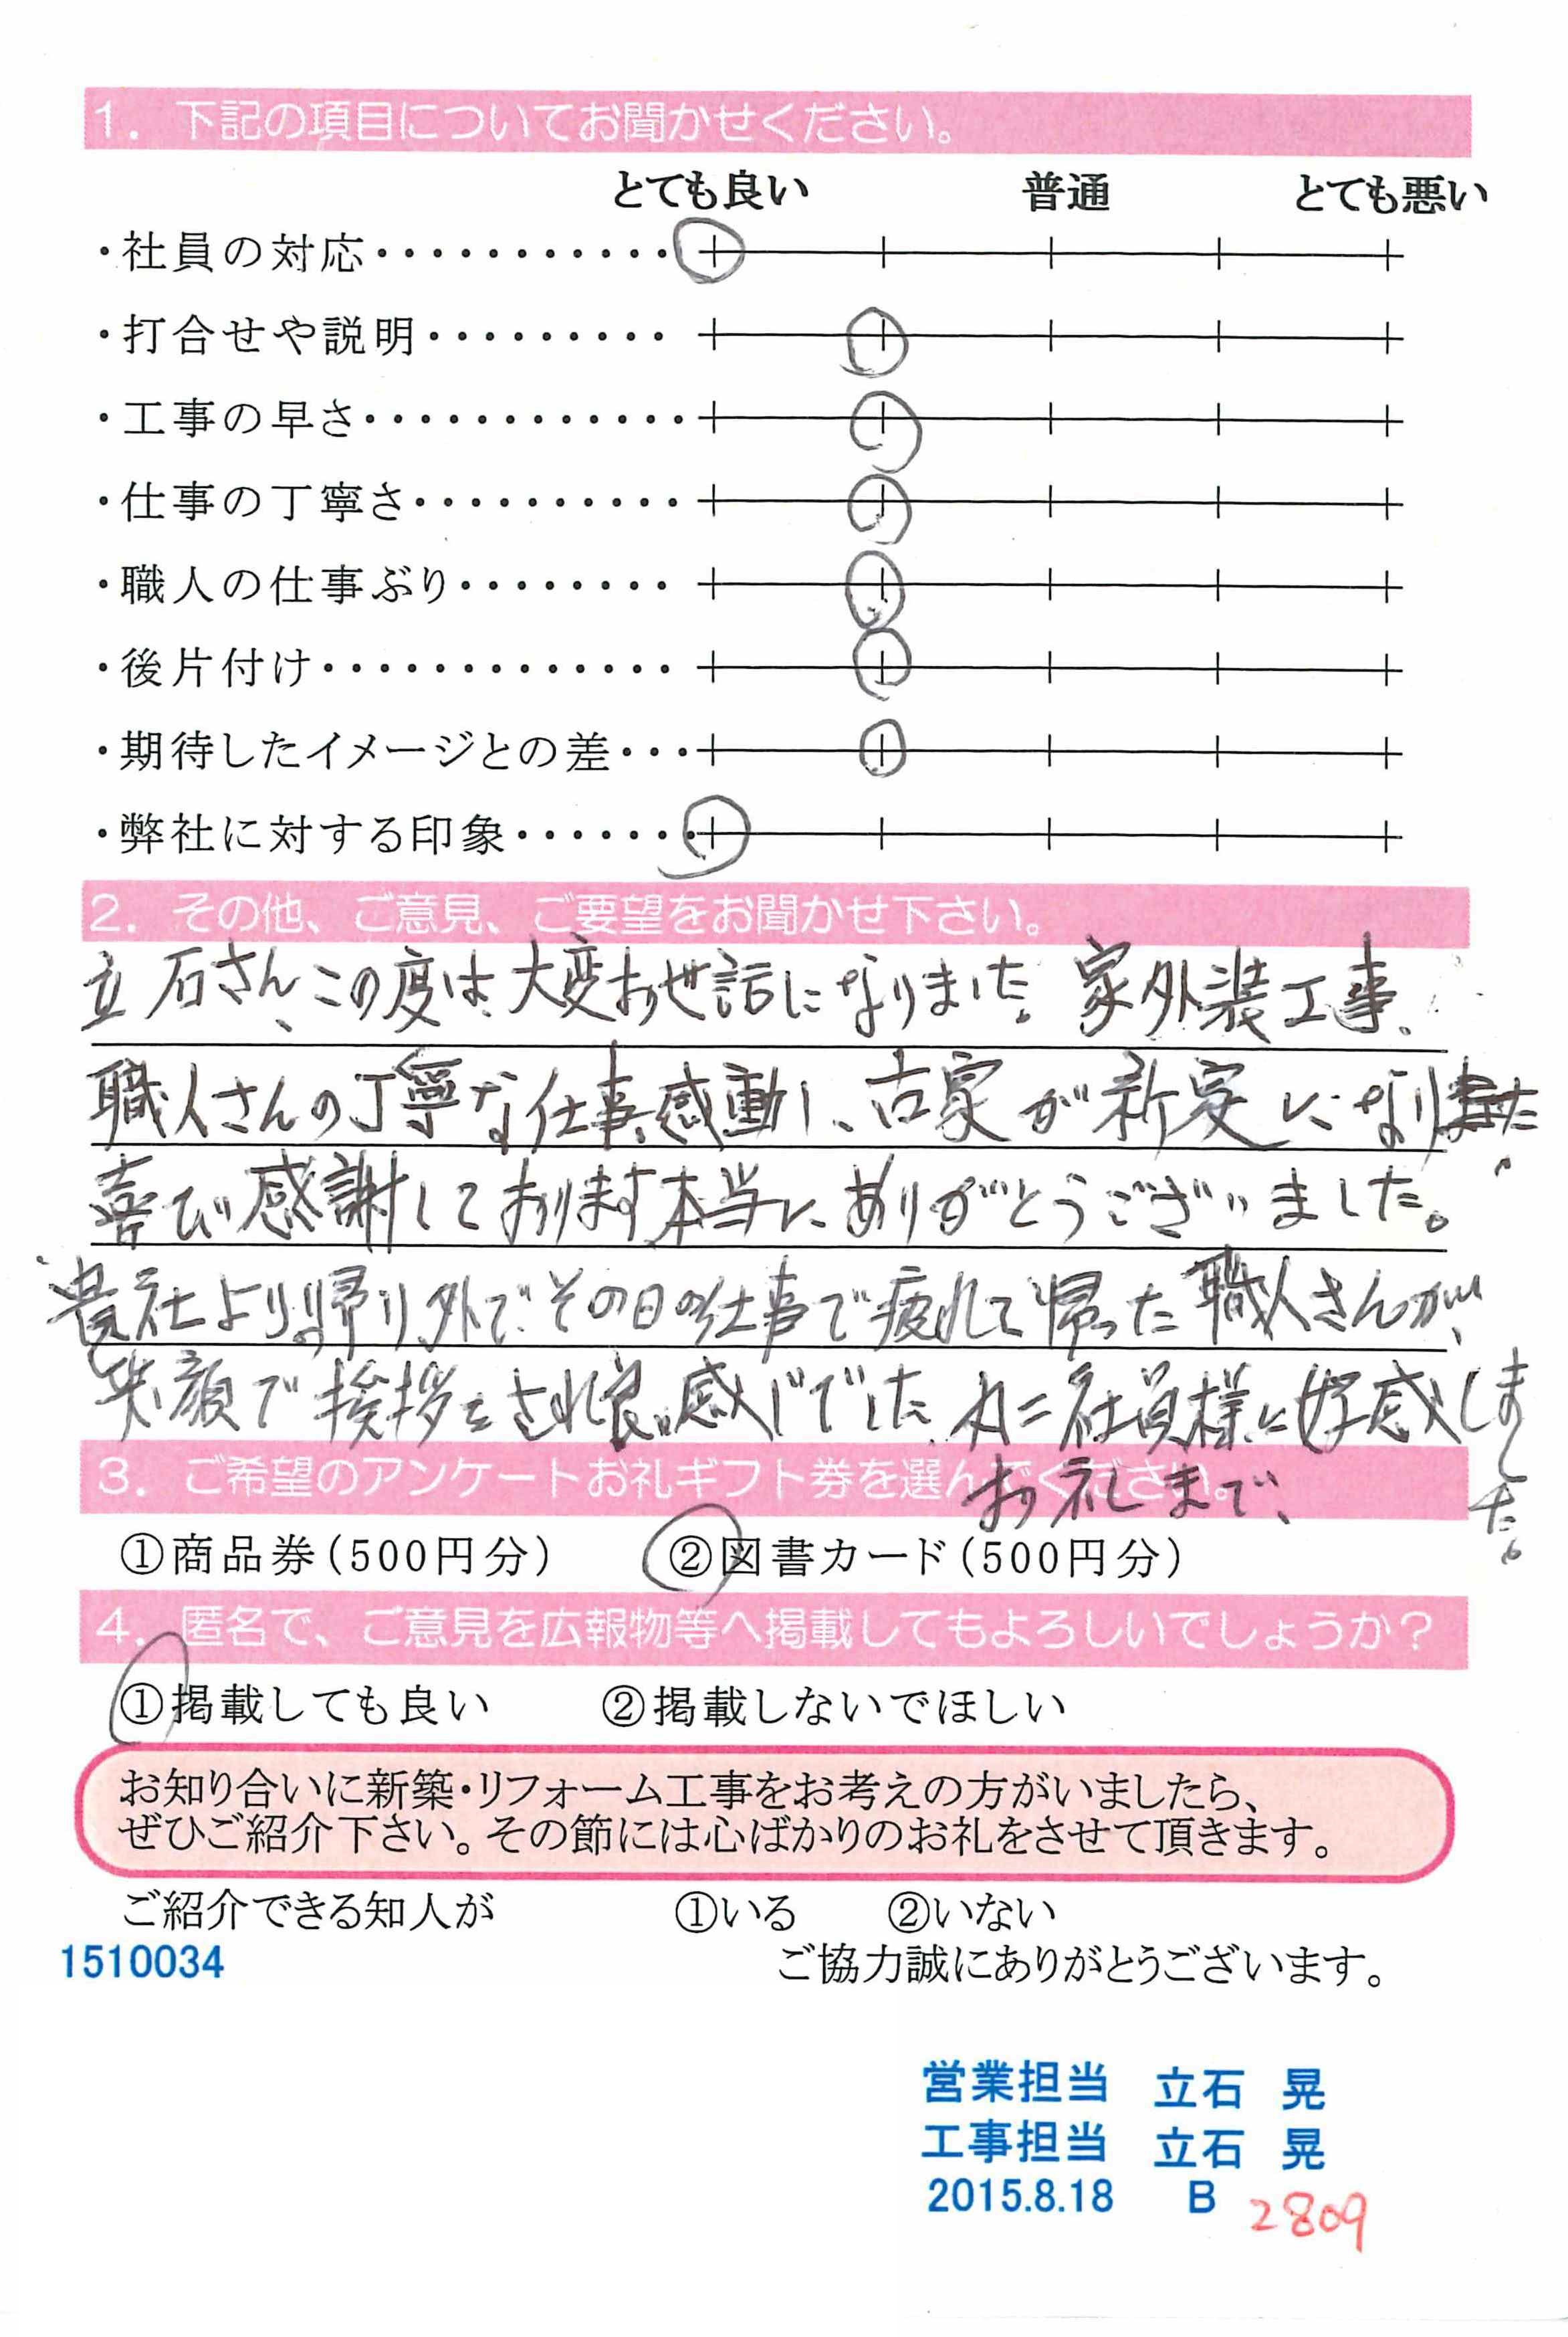 1. 下記の項目についてお聞かせください。
とても良い 普通 とても悪い
・社員の対応・・・・・・・・・・・
・打合せや説明・・・・・・・・・
・工事の早さ・・・・・・・・・・・・
・仕事の丁寧さ・・・・・・・・・・
・職人の仕事ぶり・・・・・・・・
・後片付け・・・・・・・・・・・・・
・期待したイメージとの差・・・
・弊社に対する印象・・・・・・・
2. その他、ご意見、ご要望をお聞かせ下さい。
立石さん、この度は、大変お世話になりました。家外装工事、
職人さんの丁寧な仕事、感動し、古家が新家になりました。
喜び感謝しております本当に、ありがとうございました。
貴社より帰り外で、その日の仕事で疲れて帰った職人さんが、
笑顔で挨拶をされ良い感じでした。 社員様に好感しました。
3. ご希望のアンケートお礼ギフト券を選んでください。
お礼まで、
①商品券(500円分) ②図書カード(500円分)
4. 匿名で、ご意見を広報物等へ掲載してもよろしいでしょうか?
①掲載しても良い ②掲載しないでほしい
お知り合いに新築・リフォーム工事をお考えの方がいましたら、
ぜひご紹介下さい。その節には心ばかりのお礼をさせて頂きます。
ご紹介できる知人が ①いる ②いない
1510034 ご協力誠にありがとうございます。
営業担当 立石 晃
工事担当 立石 晃
2015.8.18 B 2809